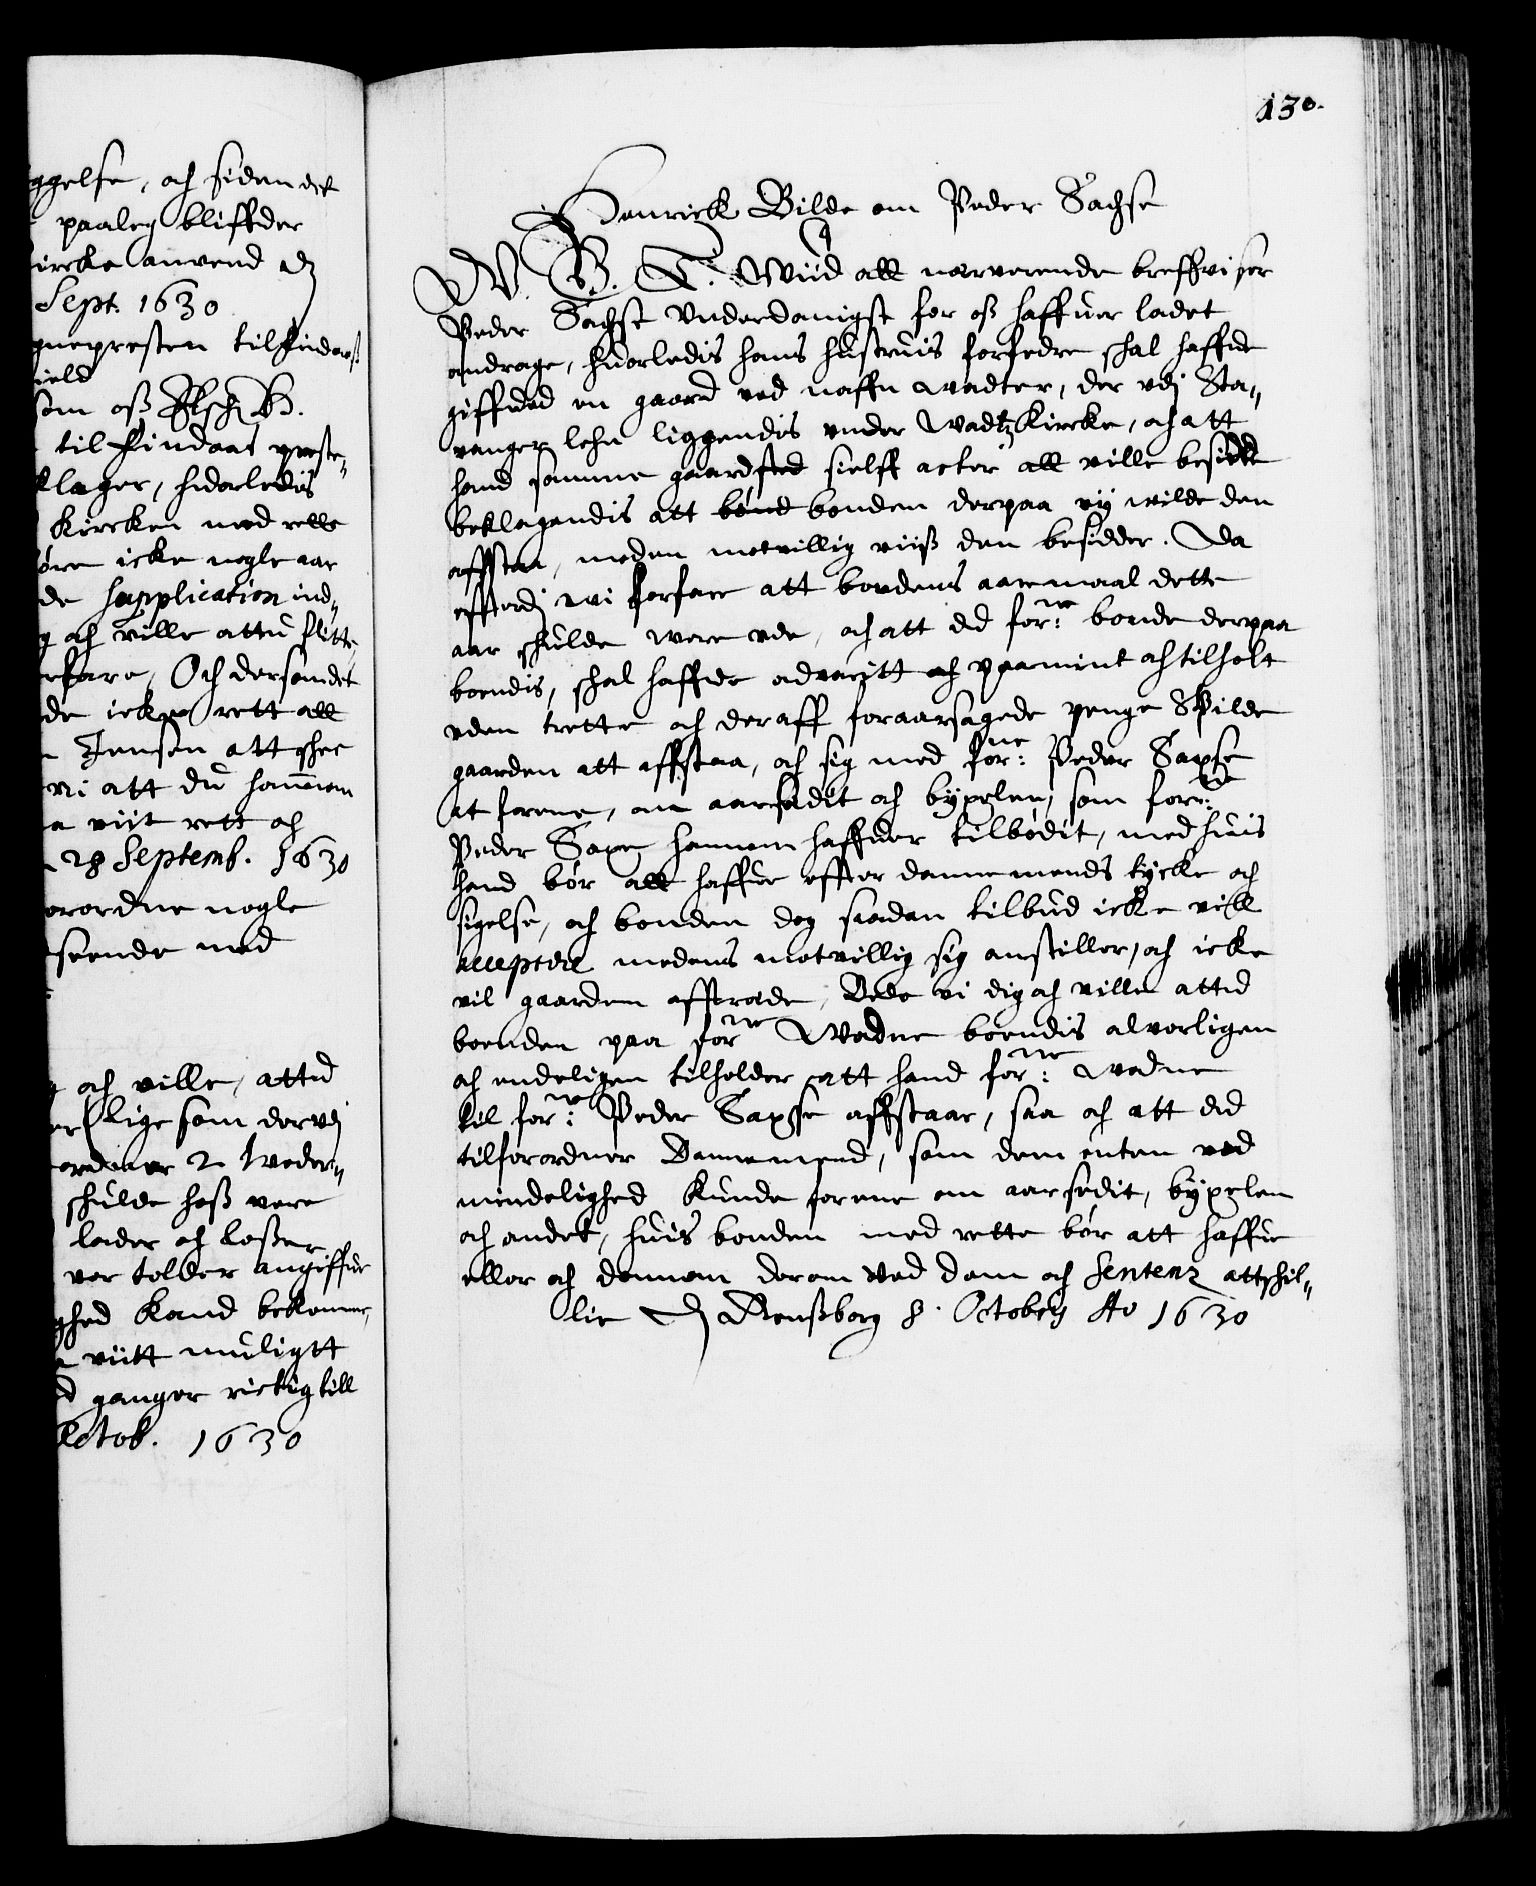 ggelse, och siden det
paaleg bliffuer
ircke anvend Dt
Sept. 1630
gnepresten til Findaas
ield
som oss Elsch: B.
til Findaas preste-
klager, huorledis
Kircken med rette
icke nogle aar
de Supplication ind-
g och ville attu flitte-
rfare, Och dersom det
de icke rett all
Jensen att skee
vi att du hannem
a viit rett och
28 Septemb. 1630
orordne nogle
seende med
och ville, attu
er lige som der vdj
ordner 2 Weder-
schulde hoss vere
lader och losser
vor tolder angiffue
ghed kand bekomme,
viitt muligtt
ganger richtig till
Octob. 1630
130.
Henrick Bilde om Peder Sachse
W. G. T. Wiid att nerverende breffviser
Peder Sachse Vnderdanigst for oss haffuer ladet
andrage, huorledis hans hustruis forfedre schal haffue
giffued en gaard ved naffn Wadter, der vdj Sta-
vanger lehn liggendis vnder Wadtz Kircke, och att
hand samme gaardsted sielff acter att ville besidde
beklagendis att bönd bonden derpaa ey wilde den
affstaa, meden motvillig viiss den besidder. Da
efterdj wi forfare att bondens aaremaal dette
aar schulde were vde, och att du forne: bonde derpaa
boendis, schal haffue advaritt och paamint och tilholt
vden trette och deraff foraarsagede penge Spilde
gaarden att affstaa, och sig med forne: Peder Saxse
at forene, om aarsedit och bygelen, som forne:
Peder Saxe hannem haffuer tilbödit, med huis
hand bör att haffue effter dannemends tycke och
sigelse, och bonden dog saadan tilbud icke vill
acceptere medens motvillig sig anstiller, och icke
vil gaarden afftrede, Bede vi dig och ville attu
bonden paa forne Wadne boendis alvorligen
och endeligen tilholder att hand forne: Wadne
til forne: Peder Saxse affstaar, saa och att du
tilforordner Dannemend, som dem enten ved
mindelighed kunde forene om aarsedit, bygelen
och andet, huis bonden med rette bör att haffue
eller och dennem derom ved dom och Sentenz attschil-
lie Dt Rensborg 8. October Ao 1630